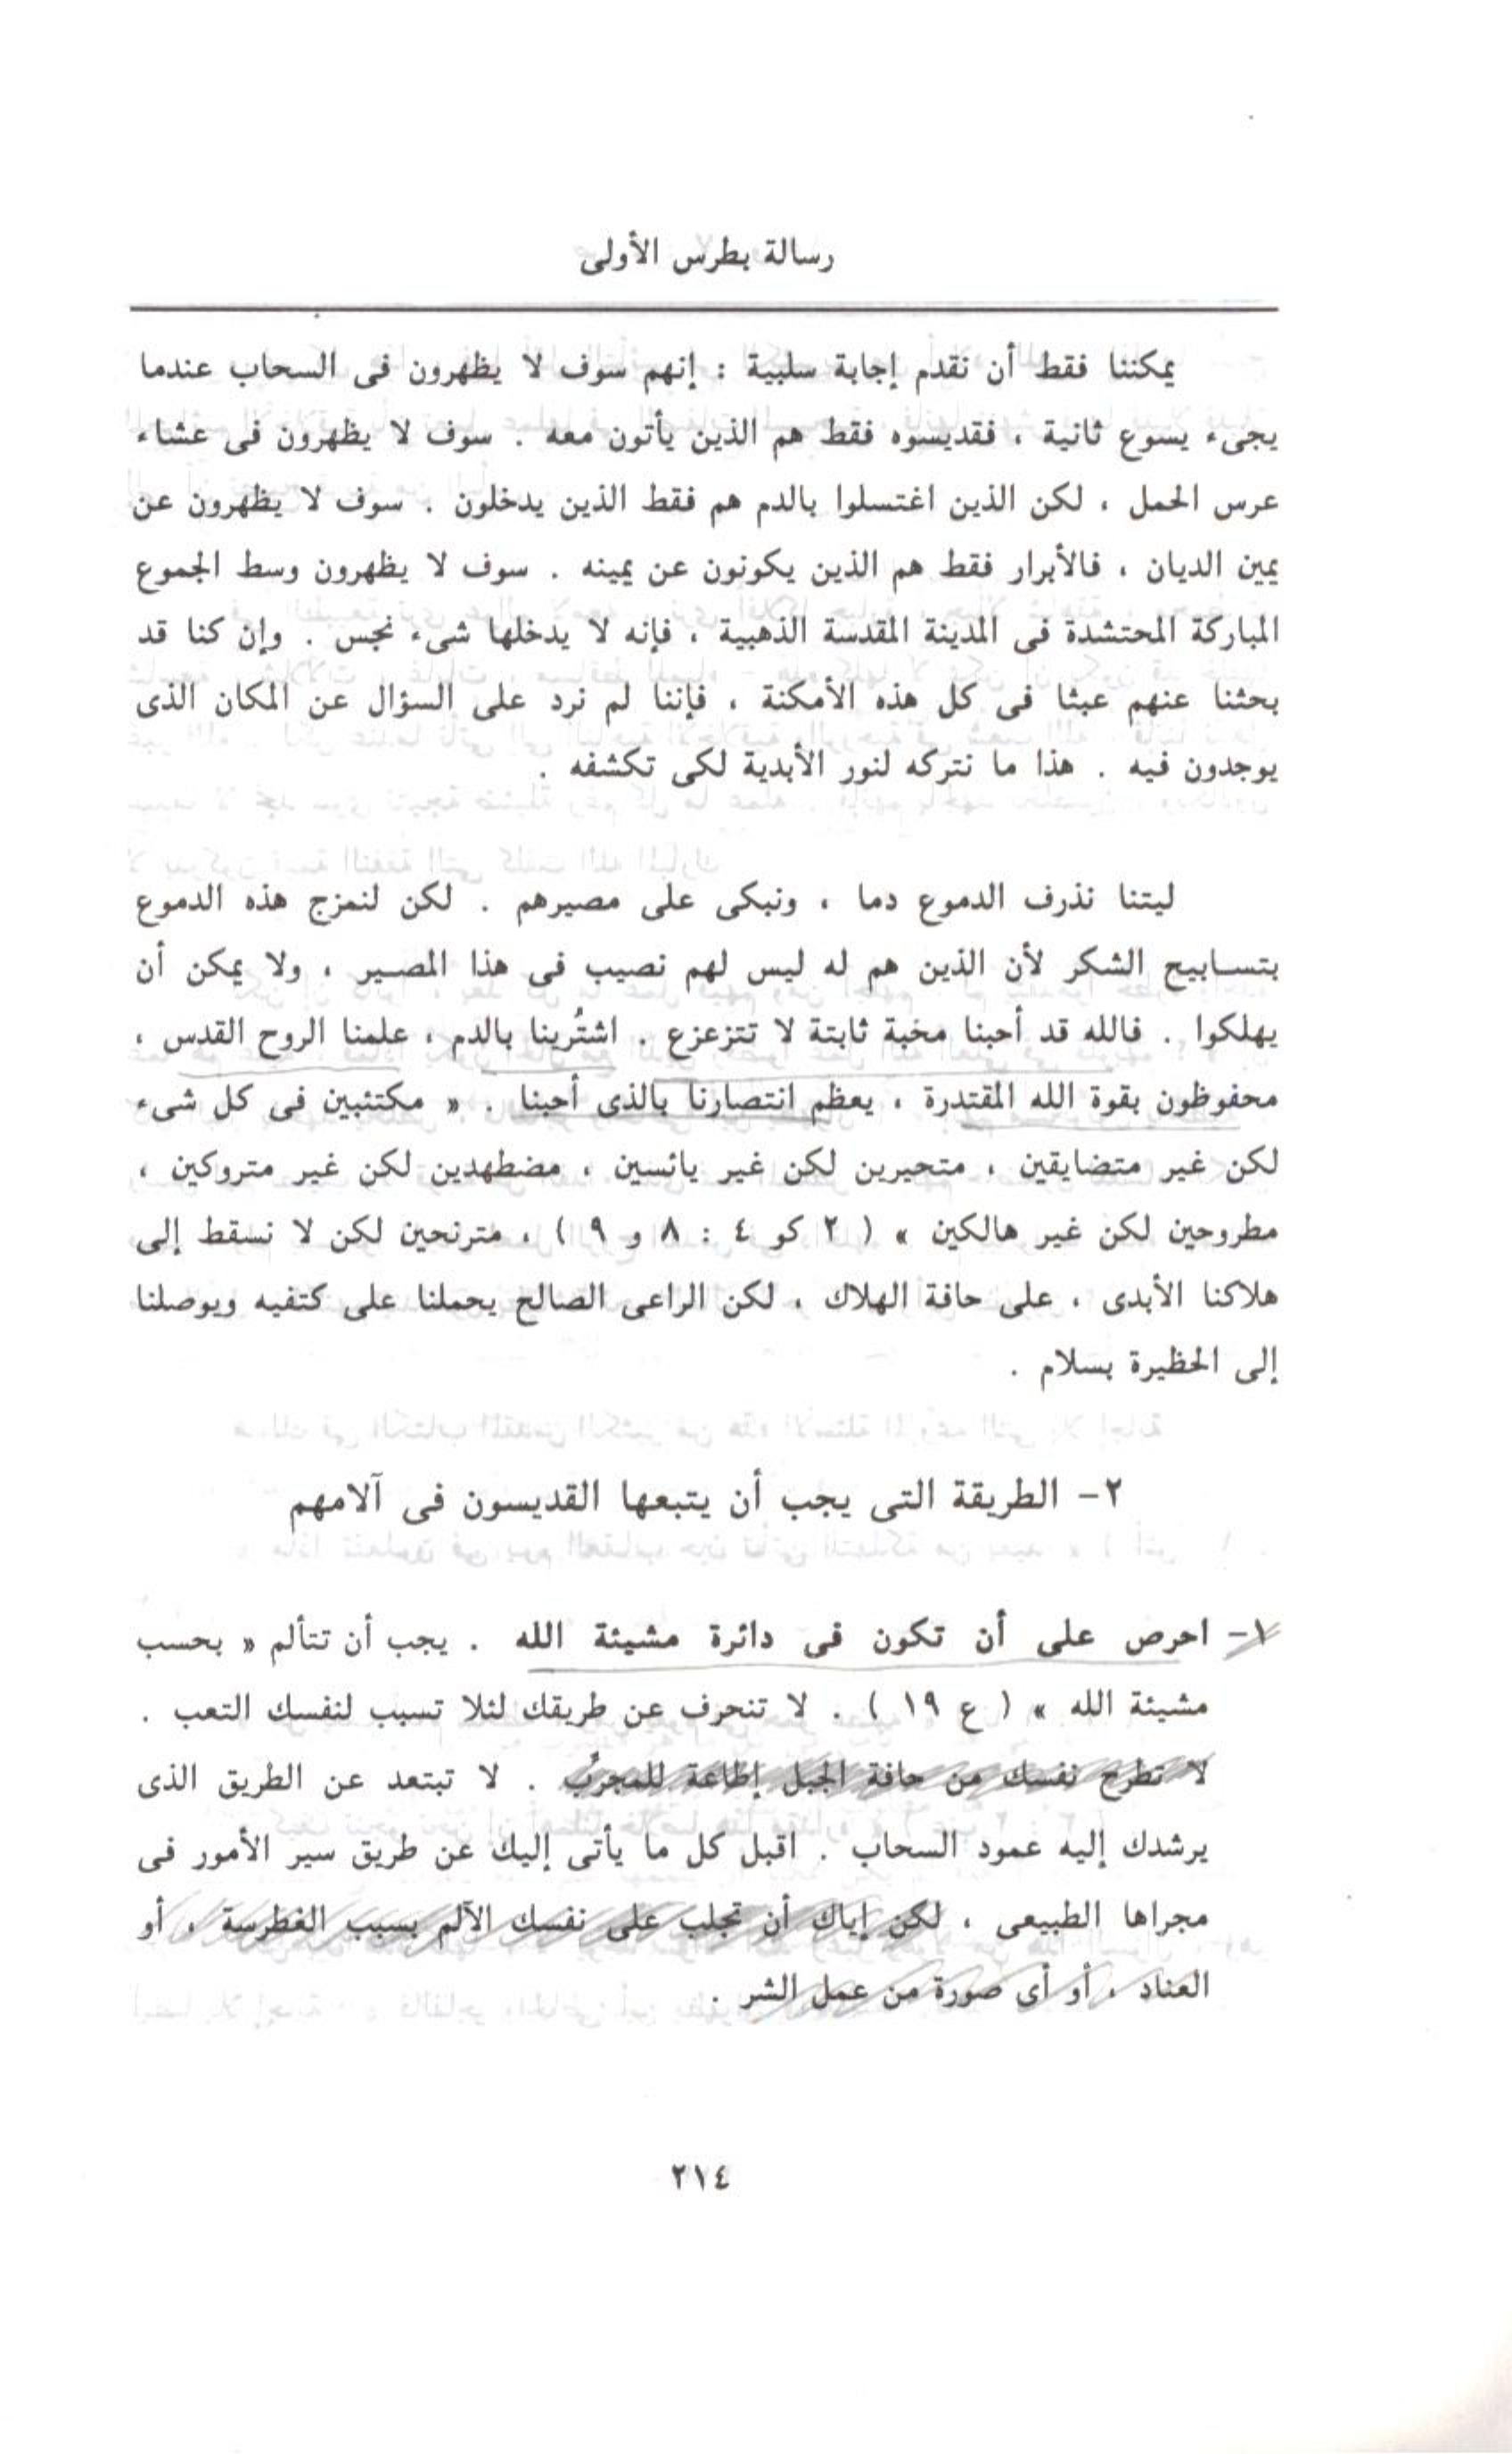 رسالة بطرس الأولى
يمكننا فقط أن نقدم إجابة سلبية : إنهم سوف لا يظهرون فى السحاب عندما
يجىء يسوع ثانية ، فقديسوه فقط هم الذين يأتون معه . سوف لا يظهرون فى عشاء
عرس الحمل ، لكن الذين اغتسلوا بالدم هم فقط الذين يدخلون . سوف لا يظهرون عن
يمين الديان ، فالأبرار فقط هم الذين يكونون عن يمينه . سوف لا يظهرون وسط الجموع
المباركة المحتشدة فى المدينة المقدسة الذهبية ، فإنه لا يدخلها شىء نجس . وإن كنا قد
بحثنا عنهم عبثا فى كل هذه الأمكنة ، فإننا لم نرد على السؤال عن المكان الذى
يوجدون فيه . هذا ما نتركه لنور الأبدية لكى تكشفه .
ليتنا نذرف الدموع دما ، ونبكى على مصيرهم . لكن لنمزج هذه الدموع
بتسابيح الشكر لأن الذين هم له ليس لهم نصيب فى هذا المصير ، ولا يمكن أن
يهلكوا . فالله قد أحبنا مخبة ثابتة لا تتزعزع . اشتُرينا بالدم ، علمنا الروح القدس ،
محفوظون بقوة الله المقتدرة ، يعظم انتصارنا بالذى أحبنا . « مكتئبين فى كل شىء
لكن غير متضايقين ، متحيرين لكن غير يائسين ، مضطهدين لكن غير متروكين ،
مطروحين لكن غير هالكين » ( ٢ كو ٤ : ٨ و ٩ ) ، مترنحين لكن لا نسقط إلى
هلاكنا الأبدى ، على حافة الهلاك ، لكن الراعى الصالح يحملنا على كتفيه ويوصلنا
إلى الحظيرة بسلام .
٢- الطريقة التى يجب أن يتبعها القديسون فى آلامهم
١- احرص على أن تكون فى دائرة مشيئة الله . يجب أن تتألم « بحسب
مشيئة الله » ( ع ١٩ ) . لا تنحرف عن طريقك لئلا تسبب لنفسك التعب .
لا تطرح نفسك من حافة الجبل إطاعة للمجرِّب . لا تبتعد عن الطريق الذى
يرشدك إليه عمود السحاب . اقبل كل ما يأتى إليك عن طريق سير الأمور فى
مجراها الطبيعى ، لكن إياك أن تجلب على نفسك الآلم بسبب الغطرسة ، أو
العناد ، أو أى صورة من عمل الشر .
٢١٤